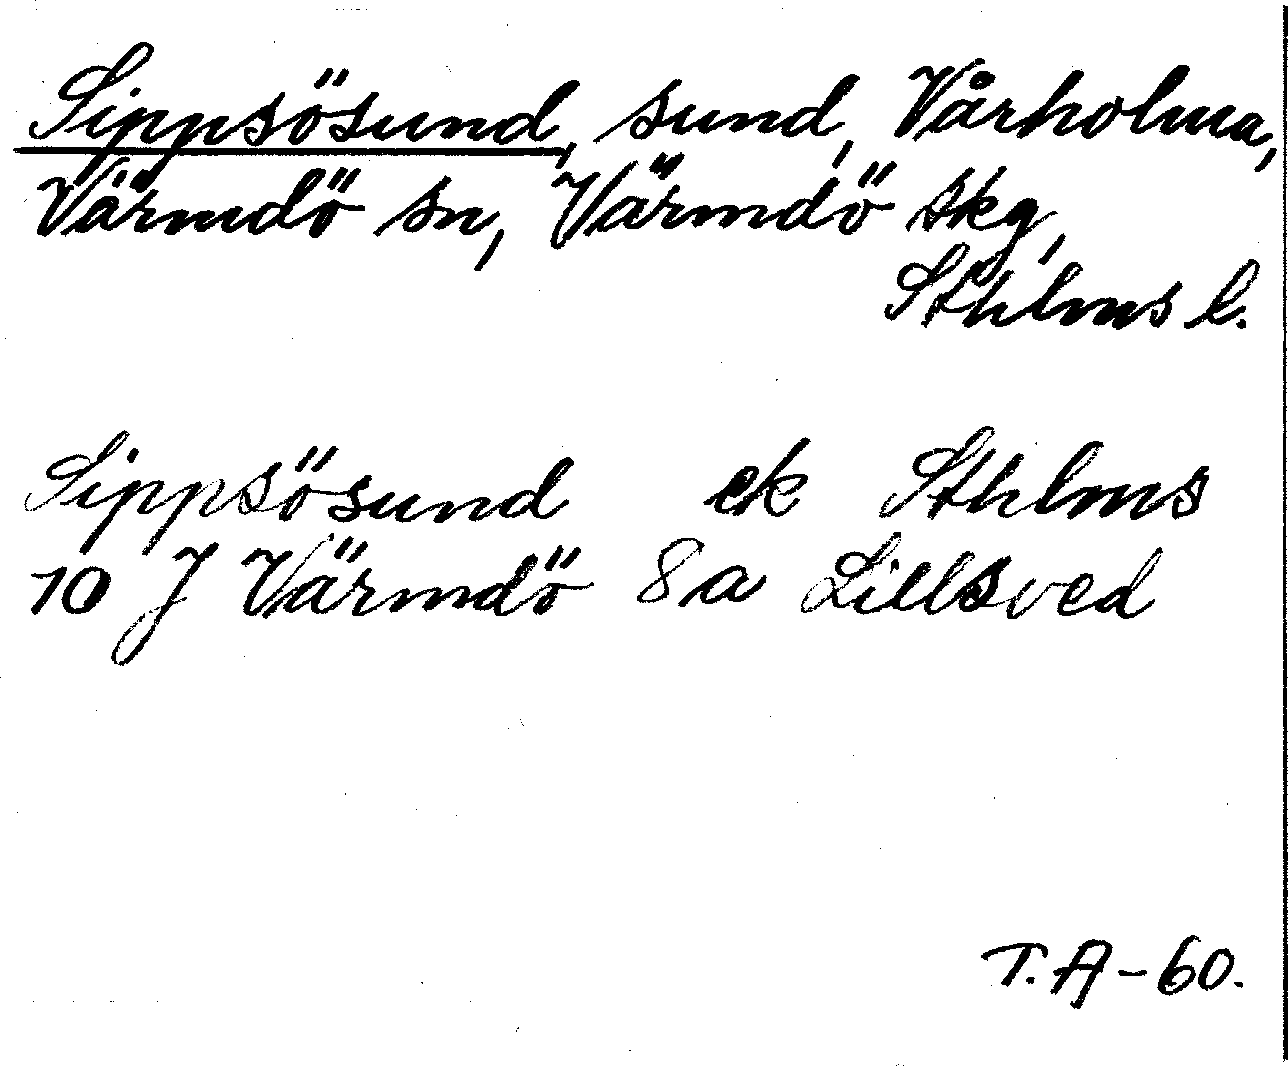 Sippsösund, sund, Vårholma,
Värmdö sn, Värmdö skg,
Sthlms l.
Sippsösund ek Sthlms
10 J Värmdö 8a Lillsved
T.A-60.